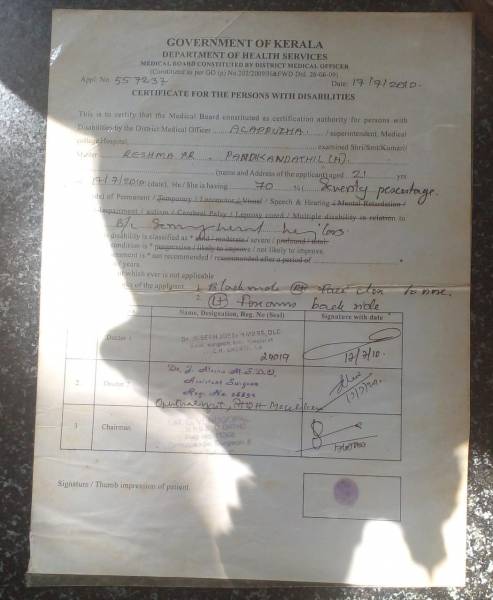 GOVERNMENT OF KERALA
DEPARTMENT OF HEALTH SERVICES
MEDICAL BOARD CONSTITUTED BY DISTRICT MEDICAL OFFICER
(Constituted as per GO (p) No.
Appl. No. 557237 Date: 17/7/2010.
CERTIFICATE FOR THE PERSONS WITH DISABILITIES
This is to certify that the Medical Board constituted as certification authority for persons with
Disabilities by the District Medical Officer ALAPPUZHA /superintendent, Medical
college Hospital, examined Shri/Smt/Kumari/
Master RESHMA PANDIKANDATHIL (H)
(name and Address of the applicant) aged 21 yrs
17/7/2010 (date). He / She is having 70 %( Severity pecentage.
of Permanent / Temporary / Locomotor / Visual / Speech & Hearing / Mental Retardation /
impairment / autism / Cerebral Palsy / Leprosy cured / Multiple disability in relation to
B/L
disability is classified as * mild / moderate / severe / profound / total.
condition is * progressive / likely to improve / not likely to improve.
is * not recommended / recommended after a period of
years.
which ever is not applicable
of the applicant. 1. Black mole face close to nose.
2. forearms back side
Name, Designation, Reg. No (Seal) Signature with date
Doctor 1
24019 17/7/10.
2. Doctor 2 Assistant Surgeon
Reg. No.
3 Chairman
Signature / Thumb impression of patient.